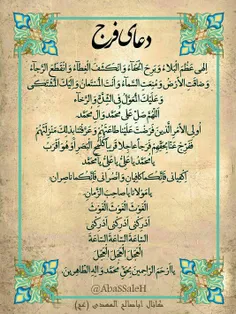 دعای فرج
اِلهی عَظُمَ الْبَلاءُ وَبَرِحَ الْخَفاءُ وَانْکَشَفَ الْغِطاءُ وَانْقَطَعَ الرَّجاءُ
وَضاقَتِ الْاَرْضُ وَمُنِعَتِ السَّماءُ وَاَنْتَ الْمُسْتَعانُ وَاِلَیْکَ الْمُشْتَکی
وَعَلَیْکَ الْمُعَوَّلُ فِی الشِّدَّةِ وَالرَّخاءِ
اَللّهُمَّ صَلِّ عَلی مُحَمَّدٍ وَآلِ مُحَمَّدٍ
اُولِی الْاَمْرِ الَّذینَ فَرَضْتَ عَلَیْنا طاعَتَهُمْ وَعَرَّفْتَنا بِذلِکَ مَنْزِلَتَهُمْ
فَفَرِّجْ عَنّا بِحَقِّهِمْ فَرَجاً عاجِلاً قَریباً کَلَمْحِ الْبَصَرِ اَوْ هُوَ اَقْرَبُ
یا مُحَمَّدُ یا عَلِیُّ یا عَلِیُّ یا مُحَمَّدُ
اِکْفِیانی فَاِنَّکُما کافِیانِ وَانْصُرانی فَاِنَّکُما ناصِرانِ
یا مَوْلانا یا صاحِبَ الزَّمانِ
الْغَوْثَ الْغَوْثَ الْغَوْثَ
اَدْرِکْنی اَدْرِکْنی اَدْرِکْنی
السّاعَةَ السّاعَةَ السّاعَةَ
الْعَجَلَ الْعَجَلَ الْعَجَلَ
یا اَرْحَمَ الرّاحِمینَ بِحَقِّ مُحَمَّدٍ وَآلِهِ الطّاهِرینَ
@AbaSSaleH
کانال اباصالح المهدی (عج)